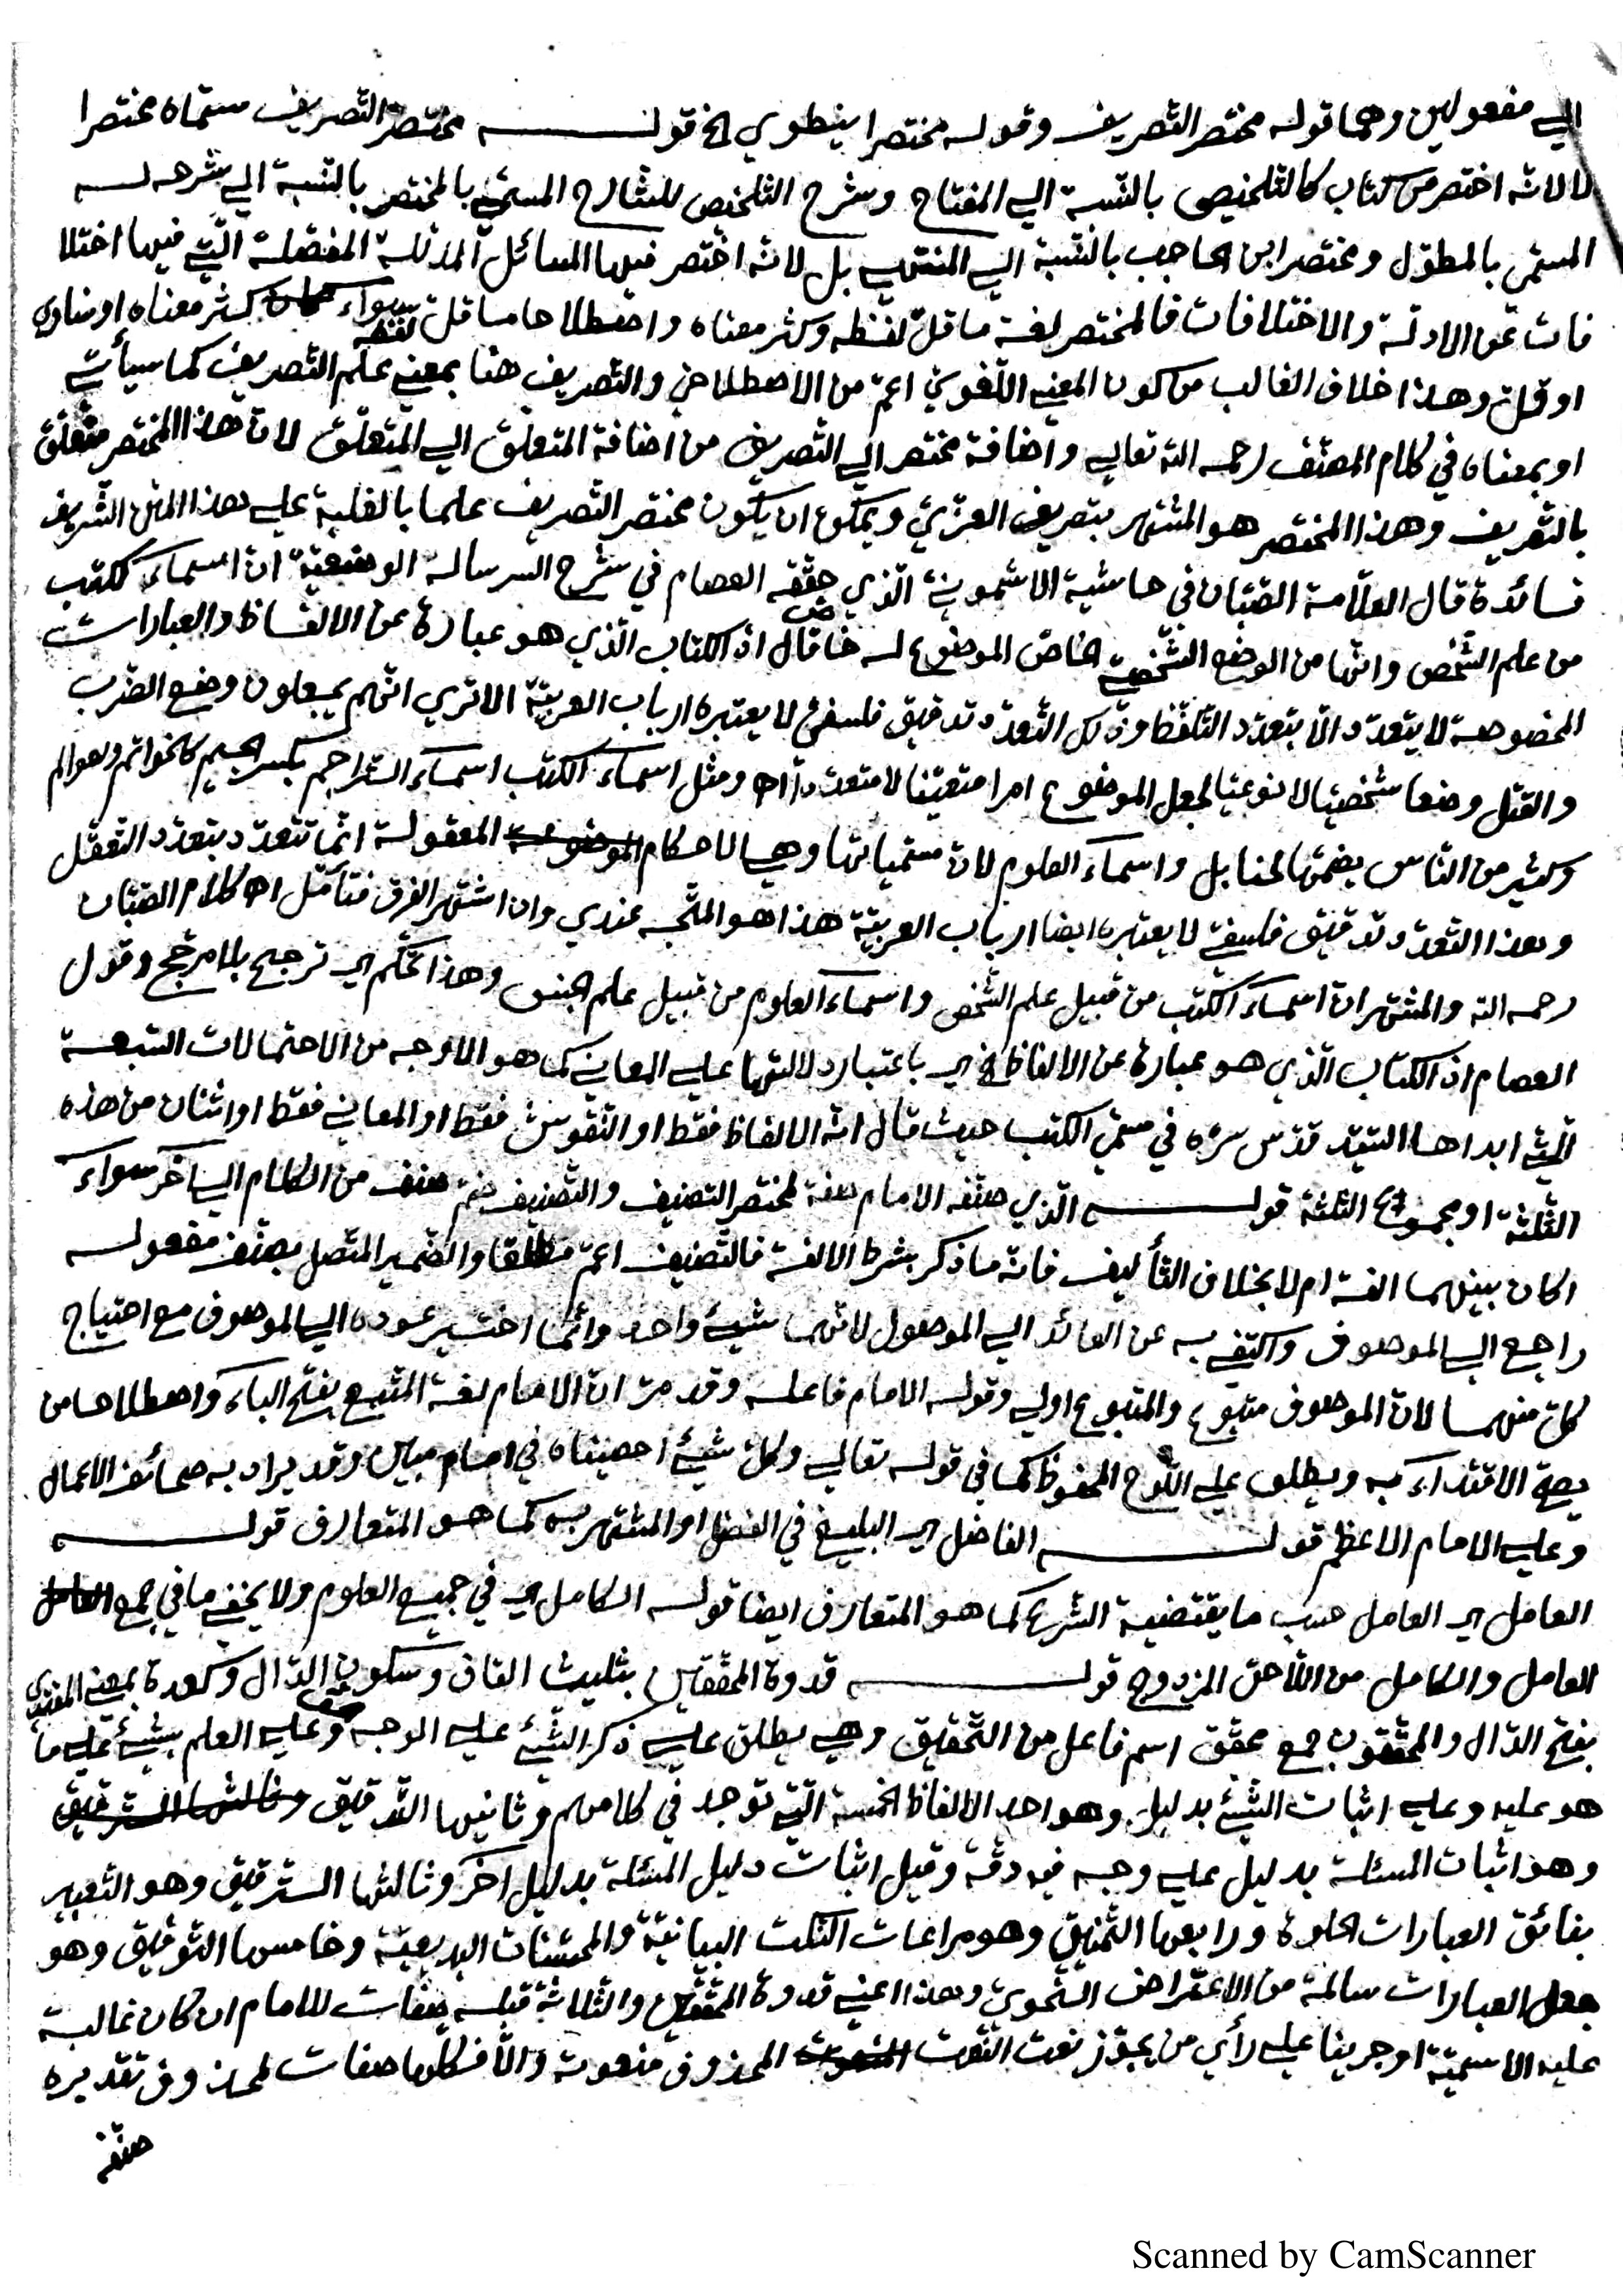 الي مفعولين وهما قوله مختصر التصريف وقوله مختصرا ينطوي الخ قولـه مختصر التصريف سمّاه مختصرا
لا لانّه اختصر من كتاب كالتلخيص بالنّسبة الي المفتاح وشرح التلخيص للشارح المسمّي بالمختصر بالنّسبة الي شرحه لـه
المسمي بالمطوّل ومختصر ابن الحاجب بالنّسبة الي المنتهي بل لانّه اختصر فيها المسائل المدلّلة المفصّلة الّتي فيها اختلا
فات عن الادلّة والاختلافات فالمختصر لغة ما قلّ لفظه وكثر معناه واصطلاحا ما قل لفظه سواء كثر معناه او ساوي
او قلّ وهذا خلاف الغالب من كون المعني اللّغوي اعمّ من الاصطلاحي والتّصريف هنا بمعني علم التّصريف كما سيأتي
او بمعناه في كلام المصنّف رحمه اللّه تعالي واضافة مختصر الي التّصريف من اضافة المتعلّق الي المتعلّق لانّ هذا المختصر متعلّق
بالتّصريف وهذا المختصر هو المشتهر بتصريف العزّي ويمكن ان يكون مختصر التصريف علما بالغلبة علي هذا المتن الشّريف
فسائدة قال العلّامة الصّبّان في حاشية الاشموني الّذي حقّقه العصام في شرح الرسالة الوضعيّة انّ اسماء الكتب
من علم الشّخص وانّها من الوضع الشّخصي الخاصّ الموضوع له خاص قال اذ الكتاب الّذي هو عبارة عن الالفاظ والعبارات
المخصوصة لا يتعدّد الّا بتعدّد التّلفّظ وذلك التّعدّد تدقيق فلسفي لا يعتبره ارباب العربيّة الا تري انّهم يجعلون وضع الضّرب
والقتل وضعا شخصيّا لا نوعيّا لجعل الموضوع امرا متعيّنا لا متعدّدا اه ومثل اسماء الكتب اسماء التّراجم بكسر الجيم كالخواتم والعوالم
وكثير من النّاس يضمّها واسماء العلوم لانّ مسمّياتها وهي الاحكام المعقولة انّما تتعدّد بتعدّد التعقّل
وهذا التّعدّد تدقيق فلسفيّ لا يعتبره ايضا ارباب العربيّة هذا هو المتّجه عندي وان اشتهر الفرق فتأمّل اه كلام الصّبّان
رحمه اللّه والمشتهر انّ اسماء الكتب من قبيل علم الشّخص واسماء العلوم من قبيل علم الجنس وهذا تحكّم اي ترجيح بلا مرجّح وقول
العصام اذ الكتاب الّذي هو عبارة عن الالفاظ الخ اي باعتبار دلالتها علي المعاني كما هو الاوجه من الاحتمالات السّبعـة
الّتي ابداها السّيّد قدّس سرّه في مسمّي الكتب حيث قال انّه الالفاظ فقط او النّقوش فقط او المعاني فقط او اثنان من هذه
الثّلثة او مجموع الثلثة قولـه الّذي صنّفه الامام صفة لمختصر التصنيف والتّصنيف ضمّ صنف من الكلام الي آخر سواء
اكان بينهما الفة ام لا بخلاف التّأليف فانّه ما ذكر بشرط الالفة فالتّصنيف اعمّ مطلقا والضّمير المتّصل بصنّف مفعولـه
راجع الي الموصوف واكتفي به عن العائد الي الموصول لانّهما شيئ واحد وانّما اختير عوده الي الموصوف مع احتياج
كلّ منهما لانّ الموصوف متبوع والمتبوع اولي وقوله الامام فاعله وقد مرّ انّ الامام لغة المتّبع بفتح الباء واصطلاحا من
يصحّ الاقتداء به ويطلق علي اللّوح المحفوظ كما في قوله تعالي وكلّ شيئ احصيناه في امام مبين وقد يراد به صحائف الاعمال
وعلي الامام الاعظم قولـه الفاضل اي البليغ في الفضل او المشتهر به كما هو المتعارف قولـه
العامل اي العامل حسب ما يقتضيه الشّرع كما هو المتعارف ايضا قولـه الكامل اي في جميع العلوم ولا يخفي ما في جمع
العامل والكامل من اللّاحق المزدوج قولـه قدوة المحقّقين بثليث القاف وسكون الدّال وكعدة بمعني المقتدي
بفتح الدّال والمحقّقون جمع محقّق اسم فاعل من التّحقيق وهي يطلق علي ذكر الشّيئ علي الوجه وعلي العلم بشيئ علي ما
هو عليه وعلي اثبات الشّيئ بدليل وهو احد الالفاظ الخمسة الّتي توجد في كلامهم وثانيها التّدقيق
وهو اثبات المسئلة بدليل علي وجه فيه دقّة وقيل اثبات دليل المسئلة بدليل آخر وثالثها التّرقيق وهو التعبير
بفائق العبارات الحلوة ورابعها التّنميق وهو مراعات النّكت البيانيّة والمحسّنات البديعيّة وخامسها التّوفيق وهو
جعل العبارات سالمة من الاعتراض النّحوي وهذا اعني قدوة المحقّقين والثّلاثة قبله صفات للامام ان كان غالبة
عليه الاسميّة او جرينا علي رأي من يجوّز نعت النّعت المحذوف منعوته والّا فكلّها صفات لمحذوف تقديره
صنّفه
Scanned by CamScanner